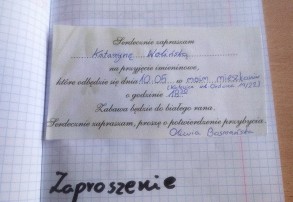 Serdecznie zapraszam
Katarzynę Wolińską
na przyjęcie imieninowe,
które odbędzie się dnia 10.05 w moim mieszkaniu
o godzinie 18:00
Zabawa będzie do białego rana.
Serdecznie zapraszam, proszę o potwierdzenie przybycia.
Oliwia
Zaproszenie